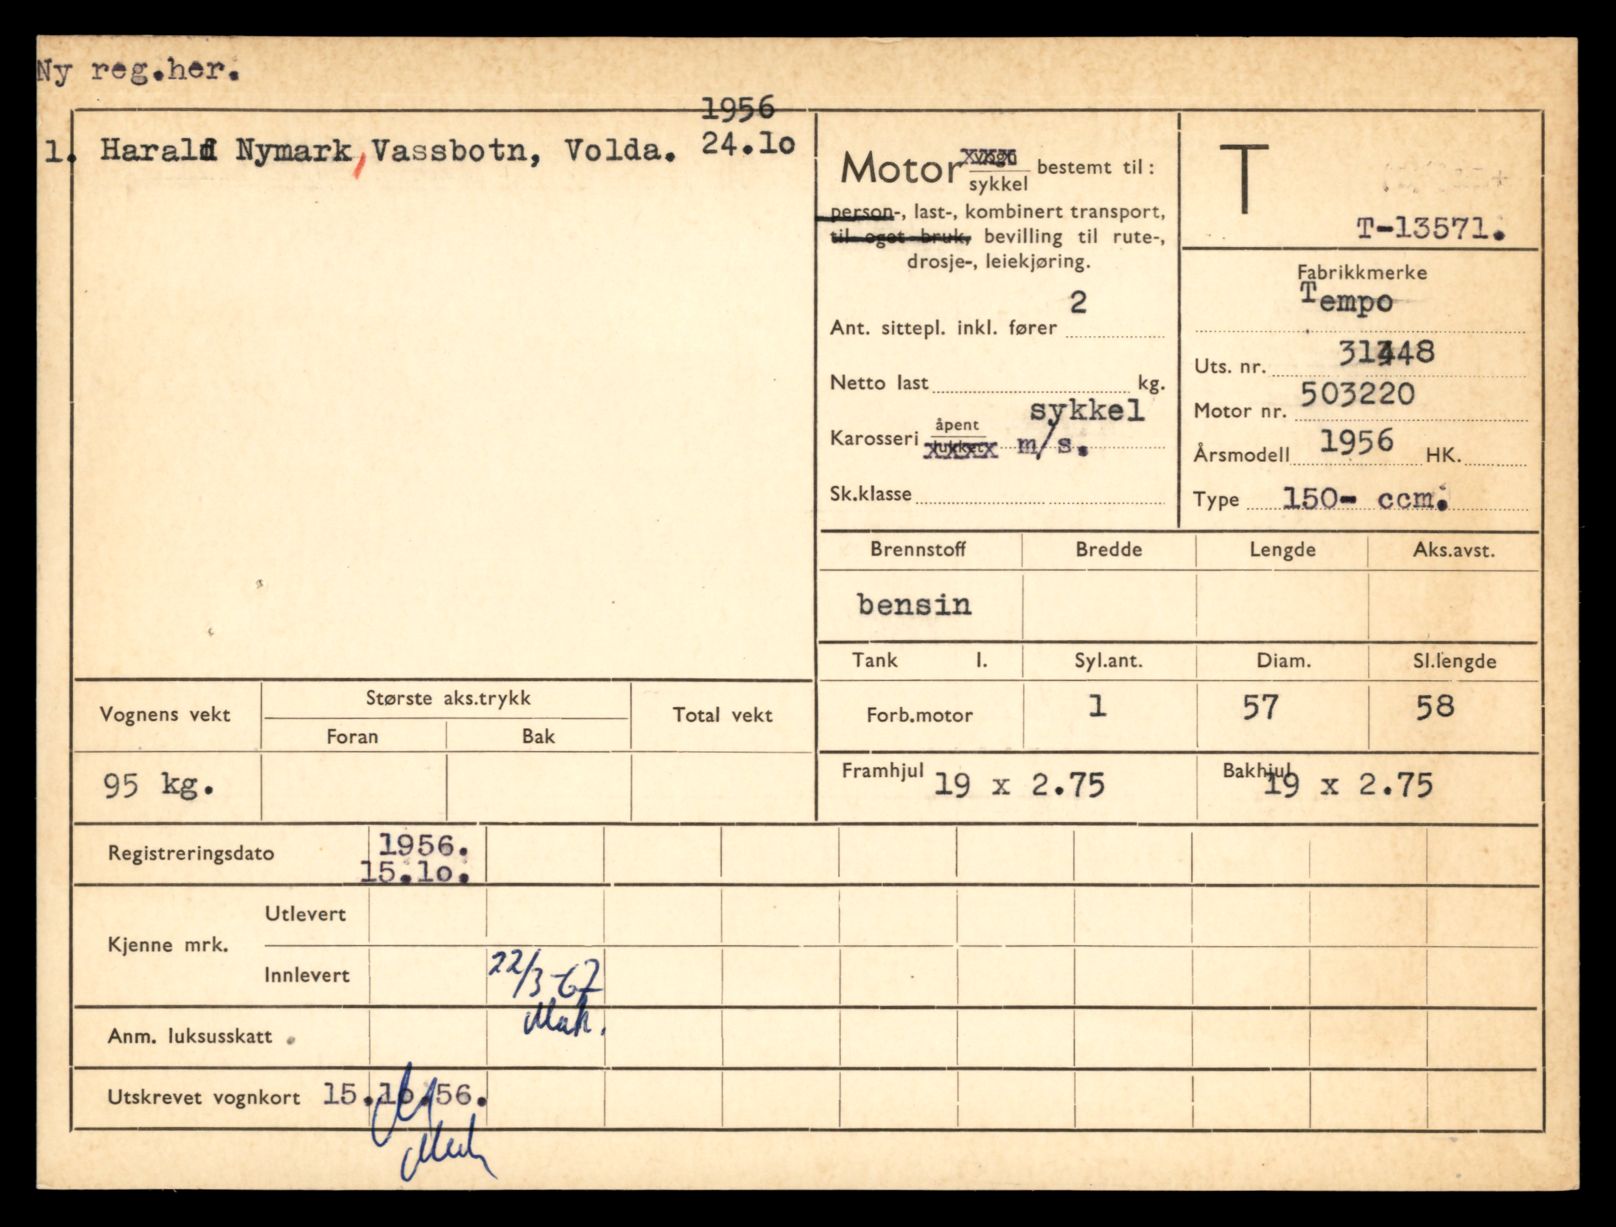 Ny reg.her.
1956
1. Harald Nymark, Vassbotn, Volda. 24.10
Motor vogn
sykkel bestemt til:
person-, last-, kombinert transport,
til eget bruk, bevilling til rute-,
drosje-, leiekjøring.
Ant. sittepl. inkl. fører 2
Netto last kg.
Karosseri åpent
lukket sykkel
m/s.
Sk.klasse
T
T-13571.
Fabrikkmerke
Tempo
Uts. nr.
Motor nr. 503220
Årsmodell 1956 HK.
Type 150- ccm.
Brennstoff Bredde Lengde Aks.avst.
bensin
Tank l. Syl.ant. Diam. Sl.lengde
Forb.motor 1 57 58
Framhjul 19 x 2.75 Bakhjul 19 x 2.75
Vognens vekt Største aks.trykk Total vekt
Foran Bak
95 kg.
Registreringsdato 1956.
15.10.
Kjenne mrk. Utlevert
Innlevert 22/3-67
Anm. luksusskatt
Utskrevet vognkort 15.10.56.